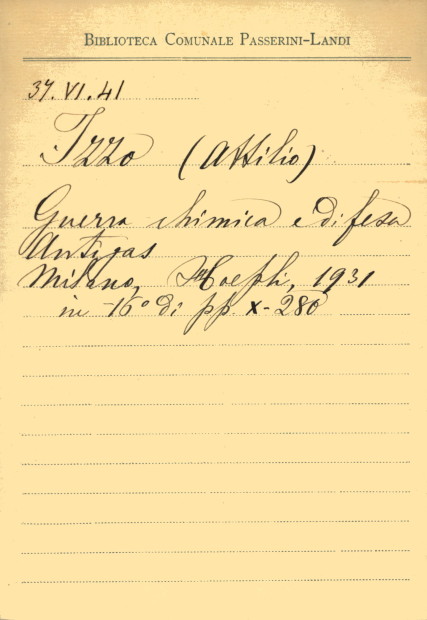 Biblioteca Comunale Passerini-Landi
37.VI.41
Izzo (Attilio)
Guerra chimica e difesa
Antigas
Milano, Hoepli, 1931
in -16° di pp. X-280